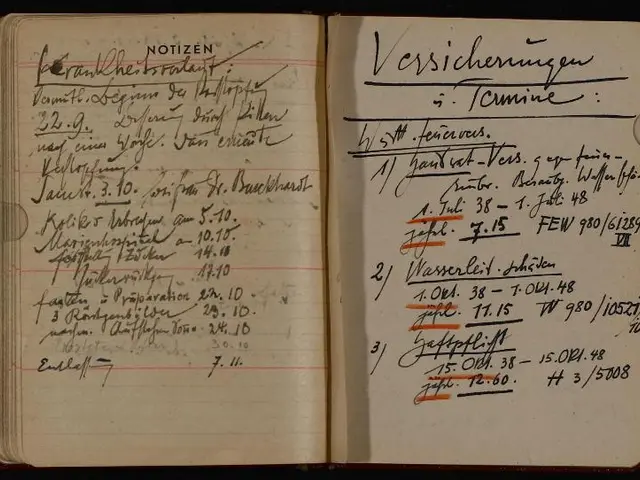 NOTIZEN
Krankheitsverlauf:
Vermutl. Beginn der Verstopfung
22.9. durch Pillen
nach einer Woche. Dann erneute
Verstopfung.
3.10. Dr. Burckhardt
Kolik u. Erbrechen am 5.10.
Marienhospital an 10.10.
Zucker 14.10
17.10
fasten u. Präparation 22.10
3 Röntgenbilder 23.10
24.10
30.10
Entlassung 7.11.
Versicherungen
u. Termine:
Württ. Feuervers.
1) Hausrat-Vers. gegen Feuer-
Beraubg. Wasser
1. Juli 38 – 1. Juli 48
jährl. 7.15 FEW 980/61289
VII
2) Wasserleit.-schäden
1. Okt. 38 – 1. Okt. 48
jährl. 11.15 W 980/10521
3) Haftpflicht
15. Okt. 38 – 15. Okt. 48
jährl. 12.60. H 3/5008